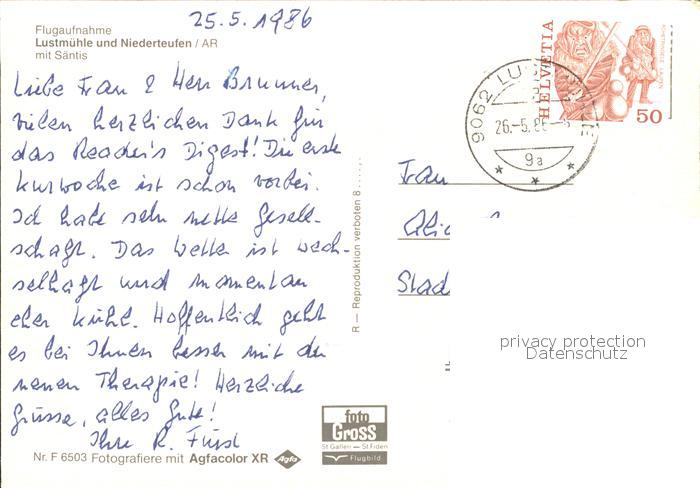 25.5.1986
Flugaufnahme
Lustmühle und Niederteufen / AR
mit Säntis
Liebe Frau & Herr Brunner,
vielen herzlichen Dank für
das Reader's Digest! Die erste
Kurwoche ist schon vorbei.
Ich habe sehr nette Gesell-
schaft. Das Wetter ist wech-
selhaft und momentan
eher kühl. Hoffentlich geht
es bei Ihnen besser mit der
neuen Therapie! Herzliche
Grüsse, alles Gute!
Ihre R. Fürst
Nr. F 6503 Fotografiere mit Agfacolor XR Agfa
R — Reproduktion verboten 8
foto
GROSS
St Gallen — St Fiden
Flugbild
HELVETIA
50
9062
26.-5.86
9a
Frau
Stad
privacy protection
Datenschutz